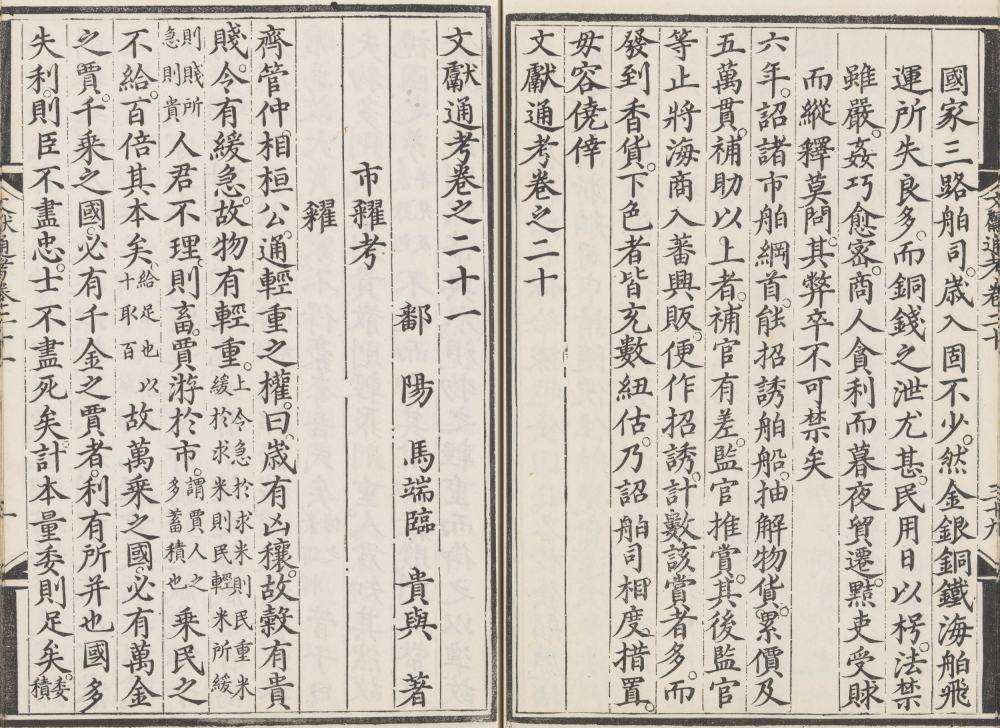 國家三路舶司。歳入固不少。然金銀銅鐵海舶飛
運所失良多。而銅錢之泄尤甚。民用日以枵。法禁
雖嚴。姦巧愈密。商人貪利而暮夜貿遷。黠吏受賕
而縱釋莫問。其弊卒不可禁矣
六年。詔諸市舶綱首。能招誘舶船。抽解物貨。累價及
五萬貫。補助以上者。補官有差。監官推賞。其後監官
等止將海商入蕃興販。便作招誘。計數該賞者多。而
發到香貨。下色者皆充數紐估。乃詔舶司相度。措置。
毋容僥倖
文獻通考卷之二十
文獻通考卷之二十一
鄱陽 馬端臨 貴與 著
市糴考
糴
齊管仲相桓公。通輕重之權。曰。歳有凶穰。故穀有貴
賤。令有緩急。故物有輕重。上令急於求米則民重米緩於求米則民輕米所緩
則賤所急則貴人君不理。則畜賈游於市。謂賈人之多蓄積也乘民之
不給。百倍其本矣。給足也以十取百故萬乘之國。必有萬金
之賈。千乘之國。必有千金之賈者。利有所并也國多
失利。則臣不盡忠。士不盡死矣。計本量委則足矣。委積